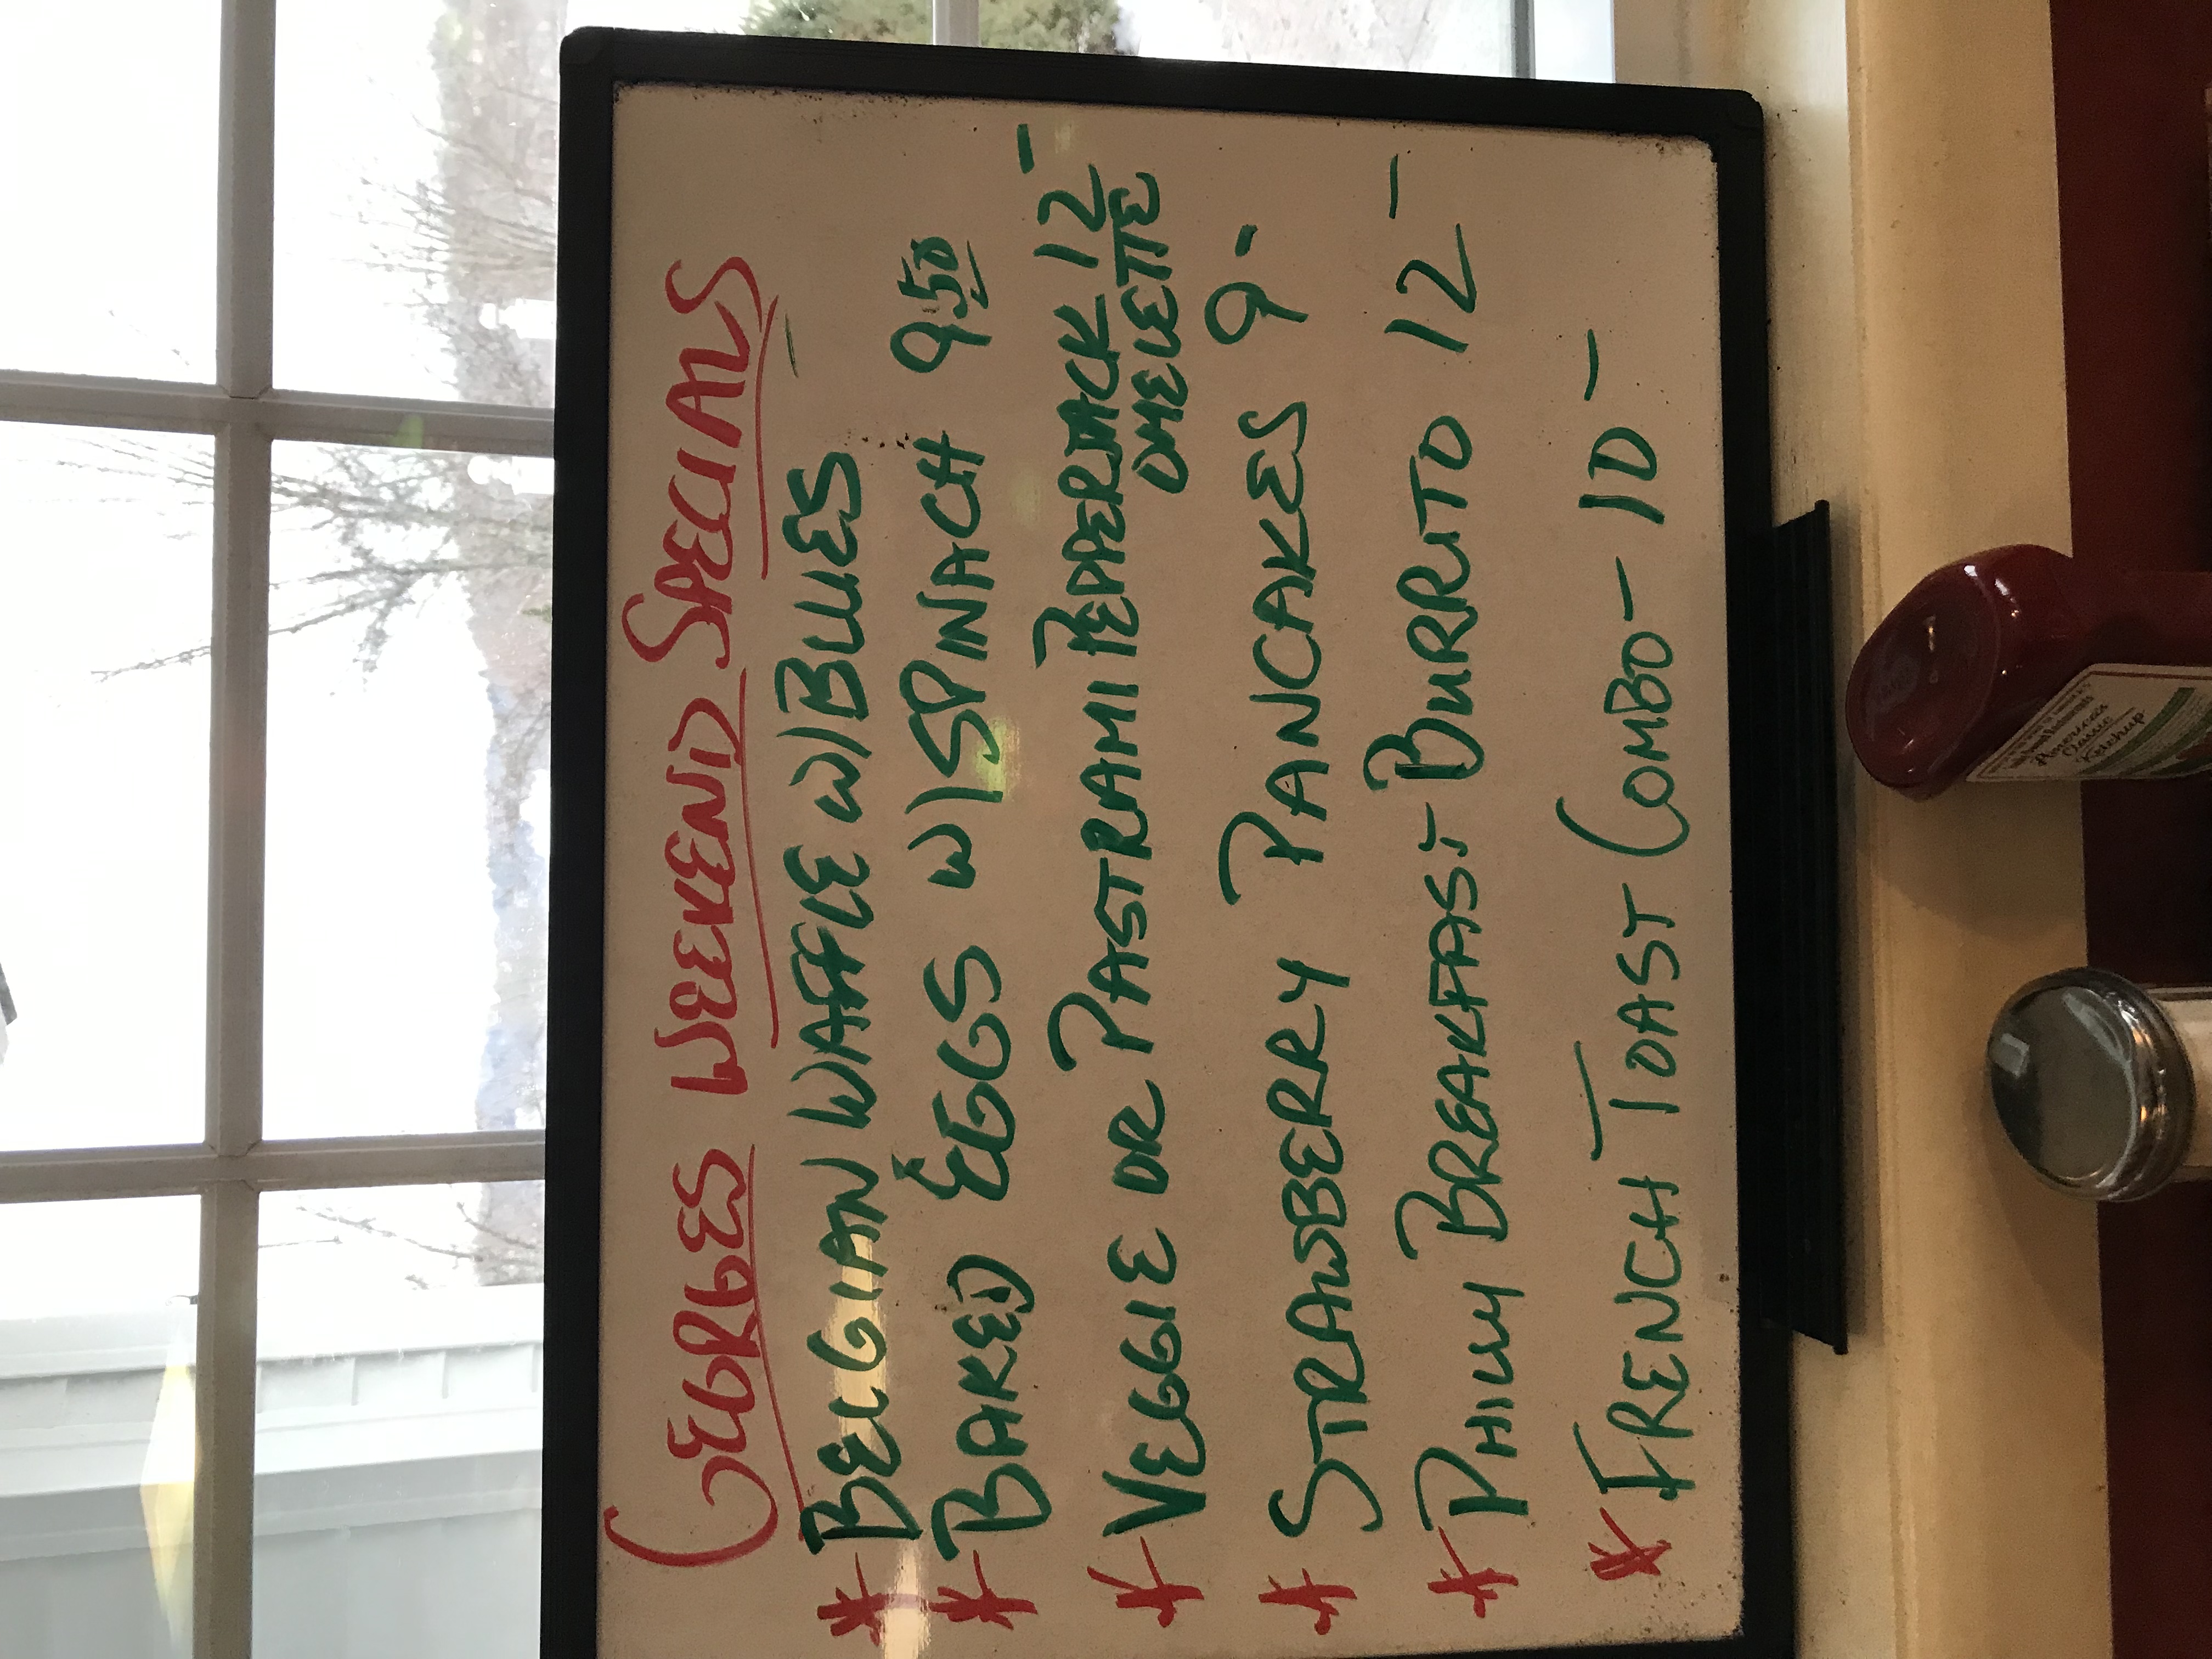 GEORGES WEEKEND SPECIALS
* BELGIAN WAFFLE W/BLUES
* BAKED EGGS W/SPINACH 9.50
* VEGGIE OR PASTRAMI PEPPERJACK 12-
OMELETTE
* STRAWBERRY PANCAKES 9-
* PHILLY BREAKFAST BURRITO 12-
* FRENCH TOAST COMBO- 10-
American
Classic
Ketchup